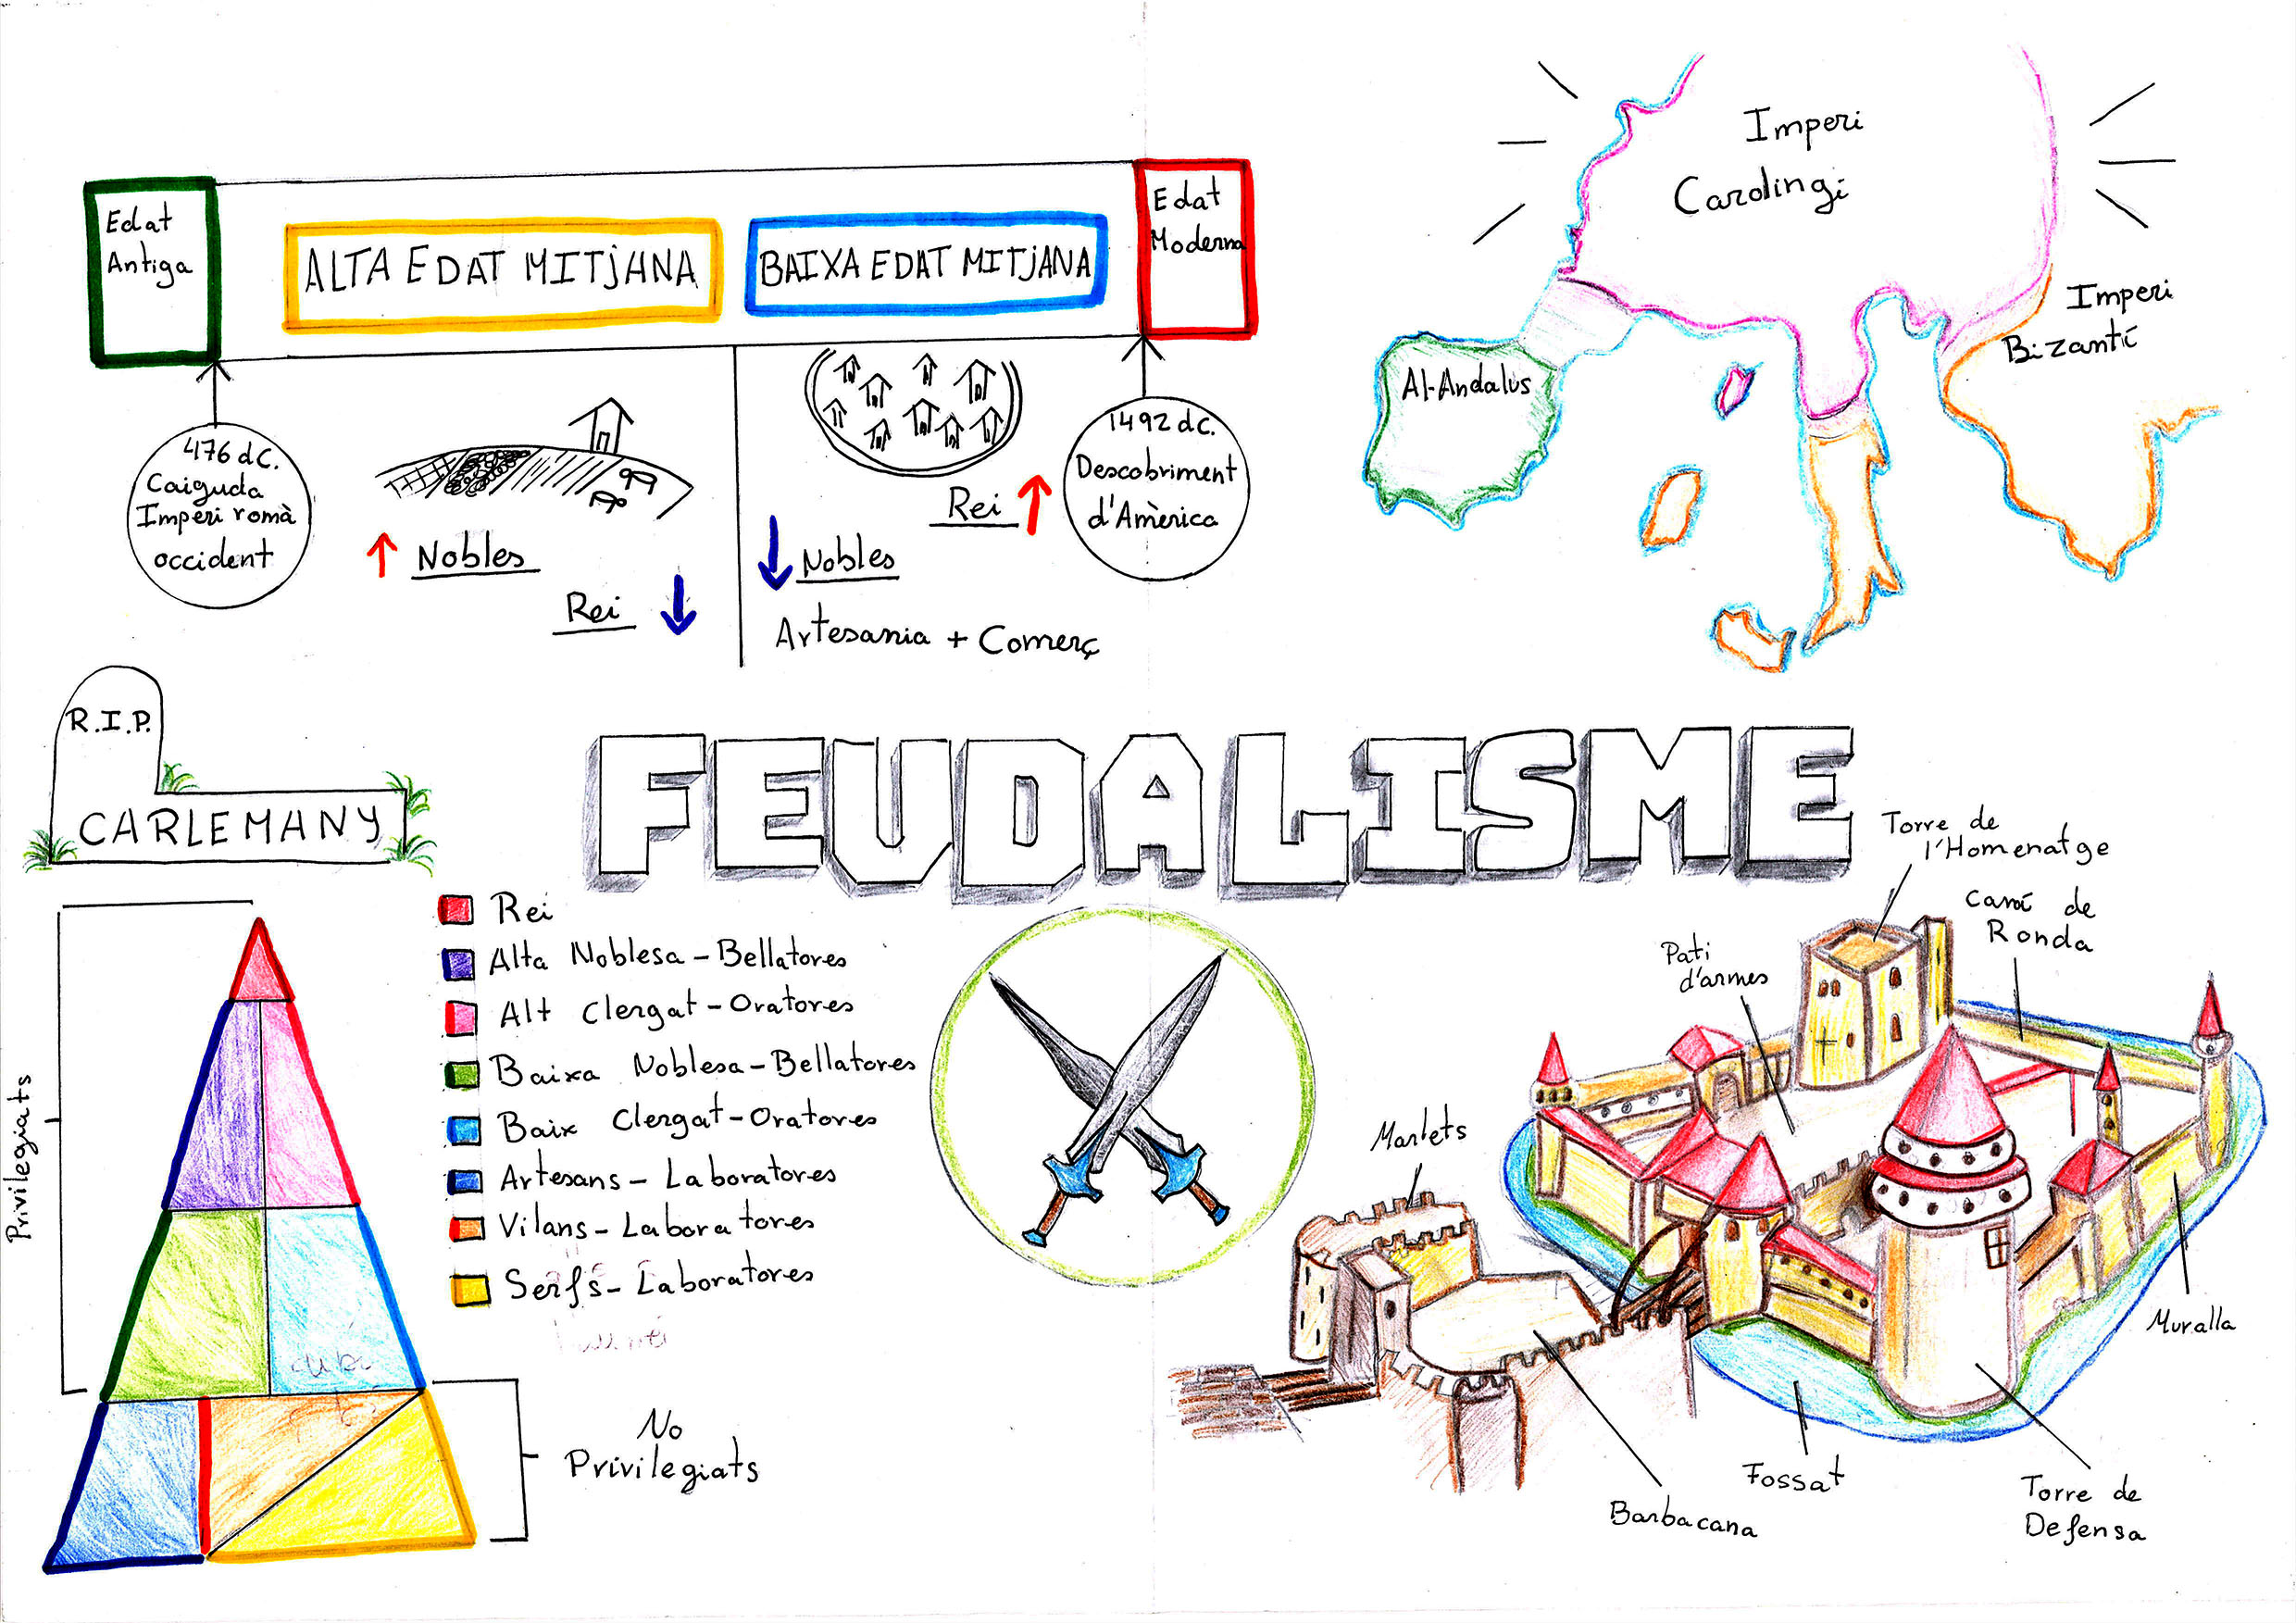 Edat
Antiga
ALTA EDAT MITJANA
BAIXA EDAT MITJANA
Edat
Moderna
476 d C.
Caiguda
Imperi romà
occident
↑ Nobles
Rei ↓
Rei ↑
↓ Nobles
Artesania + Comerç
1492 d C.
Descobriment
d'Amèrica
Imperi
Carolingi
Imperi
Bizantí
Al-Andalus
R.I.P.
CARLEMANY
FEUDALISME
Privilegiats
Rei
Alta Noblesa - Bellatores
Alt Clergat - Oratores
Baixa Noblesa - Bellatores
Baix Clergat - Oratores
Artesans - Laboratores
Vilans - Laboratores
Serfs - Laboratores
No
Privilegiats
Torre de
l'Homenatge
Camí de
Ronda
Pati
d'armes
Marlets
Muralla
Barbacana
Fossat
Torre de
Defensa